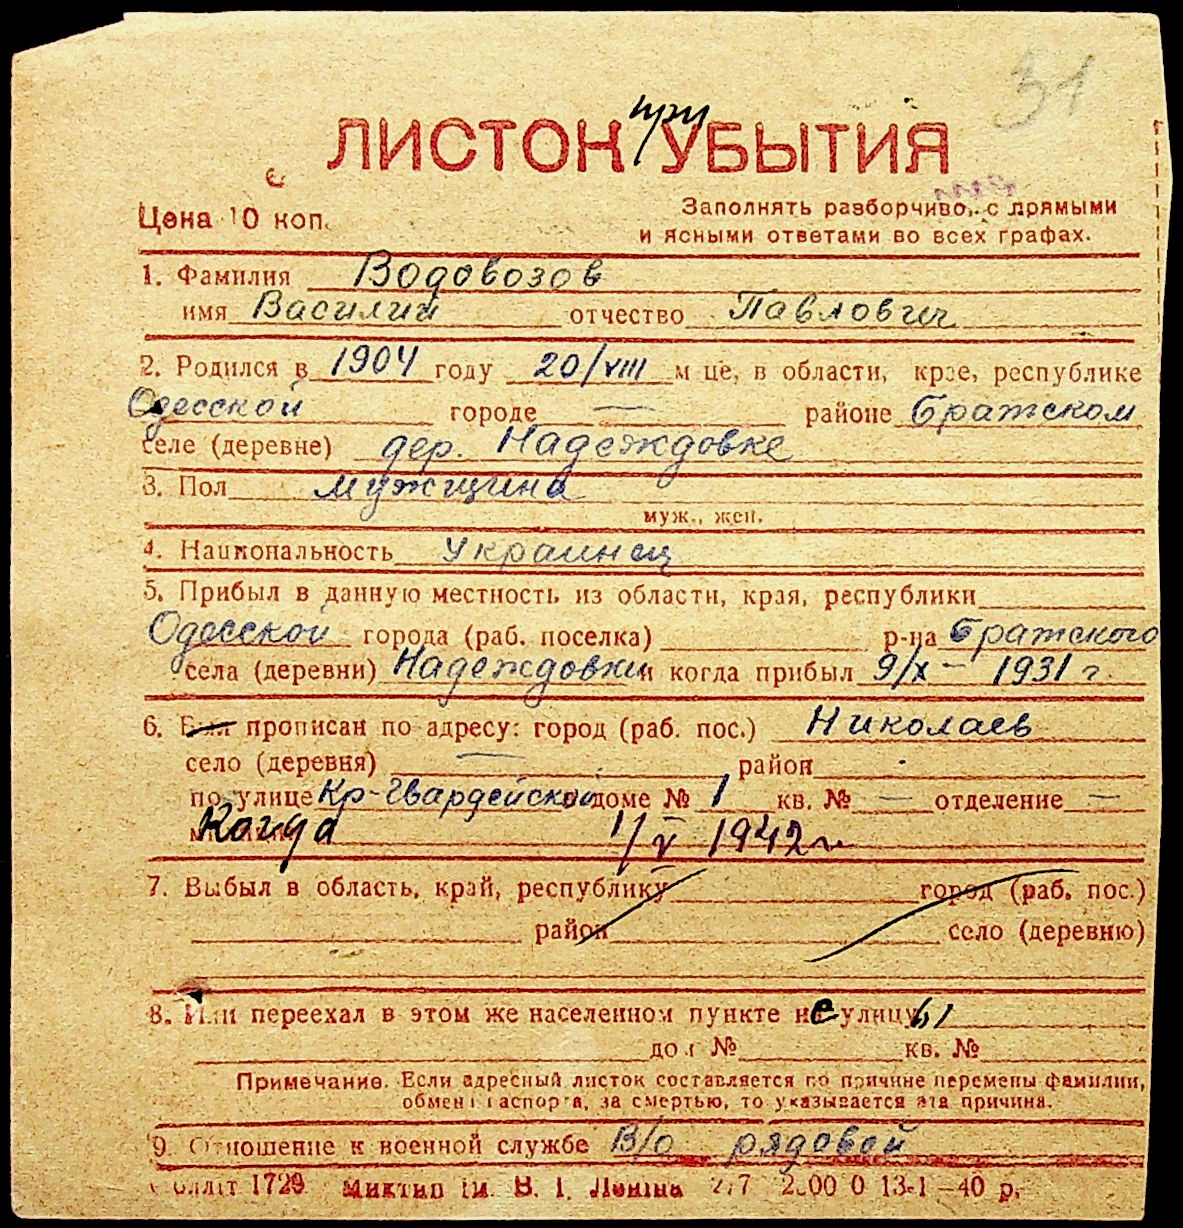 31
при
ЛИСТОК УБЫТИЯ
Цена 10 коп.
Заполнять разборчиво, с прямыми
и ясными ответами во всех графах.
1. Фамилия Водовозов
имя Василий отчество Павлович
2. Родился в 1904 году 20/VIII м це, в области, крае, республике
Одесской городе — районе Братском
селе (деревне) дер. Надеждовке
3. Пол мужщина
муж., жен.
4. Национальность Украинец
5. Прибыл в данную местность из области, края, республики
Одесской города (раб. поселка) р-на Братского
села (деревни) Надеждовки и когда прибыл 9/X - 1931 г.
6. Был прописан по адресу: город (раб. пос.) Николаев
село (деревня) — район
по улице Кр-Гвардейской доме № 1 кв. № — отделение —
Когда 1/V 1942 г.
7. Выбыл в область, край, республику город (раб. пос.)
район село (деревню)
8. Или переехал в этом же населенном пункте не улицу
дом № кв. №
Примечание. Если адресный листок составляется по причине перемены фамилии,
обмена паспорта, за смертью, то указывается эта причина.
9. Отношение к военной службе В/о рядовой
1729 ім. В. І. Леніна 2000 0 13-1-40 р.